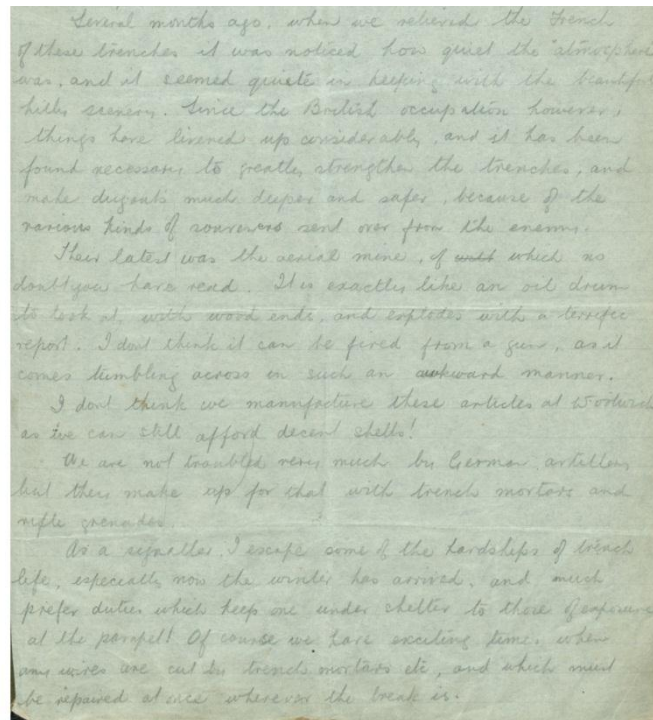 Several months ago, when we relieved the French
of these trenches it was noticed how quiet the "atmosphere
was, and it seemed quiete in keeping with the beautiful
hilly scenery. Since the British occupation however,
things have livened up considerably, and it has been
found necessary to greatly strengthen the trenches, and
make dugouts much deeper and safer, because of the
various kinds of souvenirs sent over from the enemy.
Their latest was the aerial mine, of which no
doubt you have read. It is exactly like an oil drum
to look at, with wood ends, and explodes with a terrific
report. I dont think it can be fired from a gun, as it
comes tumbling across in such an awkward manner.
I dont think we manufacture these articles at Woolwich
as we can still afford decent shells!
We are not troubled very much by German artillery
but they make up for that with trench mortars and
rifle grenades
As a signaller, I escape some of the hardships of trench
life, especially now the winter has arrived, and much
prefer duties which keep one under shelter to those of exposure
at the parapet! Of course we have exciting times when
any wires are cut by trench mortars etc, and which must
be repaired at once wherever the break is.